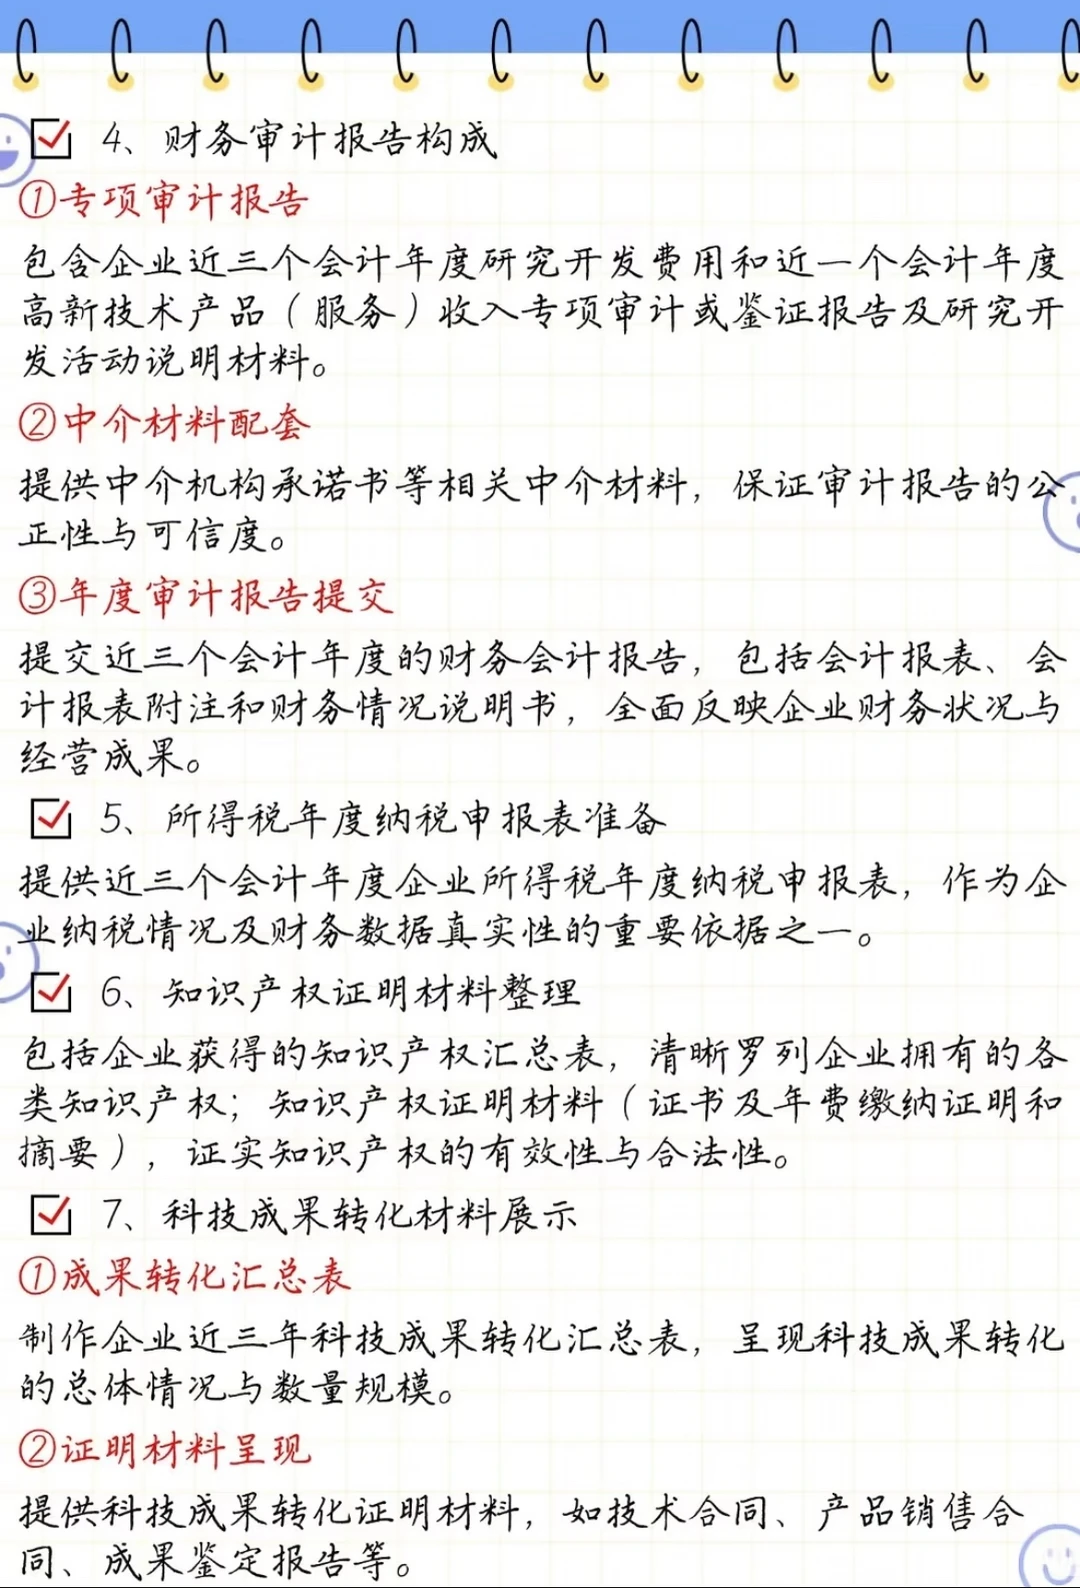 4、财务审计报告构成
①专项审计报告
包含企业近三个会计年度研究开发费用和近一个会计年度
高新技术产品（服务）收入专项审计或鉴证报告及研究开
发活动说明材料。
②中介材料配套
提供中介机构承诺书等相关中介材料，保证审计报告的公
正性与可信度。
③年度审计报告提交
提交近三个会计年度的财务会计报告，包括会计报表、会
计报表附注和财务情况说明书，全面反映企业财务状况与
经营成果。
5、所得税年度纳税申报表准备
提供近三个会计年度企业所得税年度纳税申报表，作为企
业纳税情况及财务数据真实性的重要依据之一。
6、知识产权证明材料整理
包括企业获得的知识产权汇总表，清晰罗列企业拥有的各
类知识产权；知识产权证明材料（证书及年费缴纳证明和
摘要），证实知识产权的有效性与合法性。
7、科技成果转化材料展示
①成果转化汇总表
制作企业近三年科技成果转化汇总表，呈现科技成果转化
的总体情况与数量规模。
②证明材料呈现
提供科技成果转化证明材料，如技术合同、产品销售合
同、成果鉴定报告等。